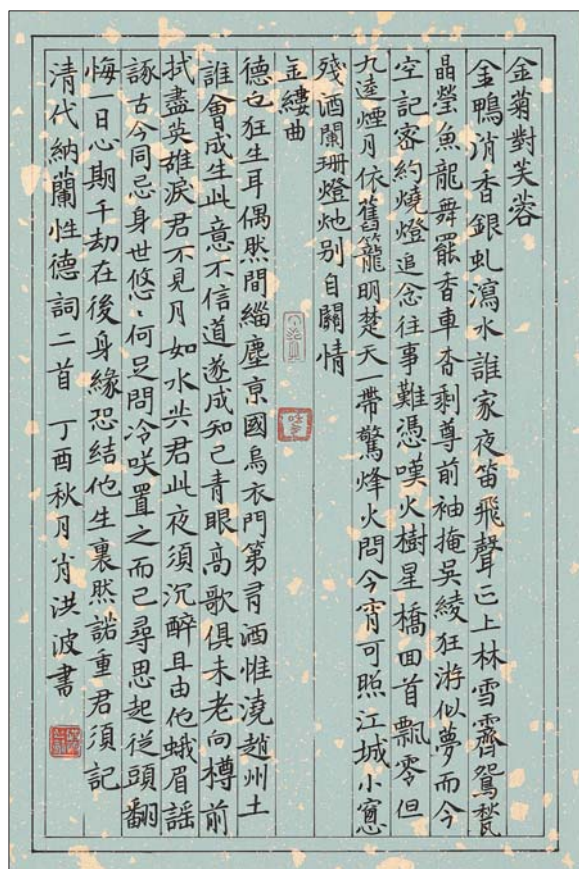 金菊對芙蓉
金鴨消香銀虬瀉水誰家夜笛飛聲正上林雪霽鴛甃
晶瑩魚龍舞罷香車杳剩尊前袖掩吳綾狂游似夢而今
空記密約燒燈追念往事難憑嘆火樹星橋回首飄零但
九逵煙月依舊籠明楚天一帶驚烽火問今宵可照江城小窗
殘酒闌珊燈灺别自關情
金縷曲
德也狂生耳偶然間緇塵京國烏衣門第有酒惟澆趙州土
誰會成生此意不信道遂成知己青眼高歌俱未老向樽前
拭盡英雄淚君不見月如水共君此夜須沉醉且由他蛾眉謠
諑古今同忌身世悠悠何足問冷咲置之而已尋思起從頭翻
悔一日心期千劫在後身緣恐結他生裏然諾重君須記
清代納蘭性德詞二首 丁酉秋月肖洪波書